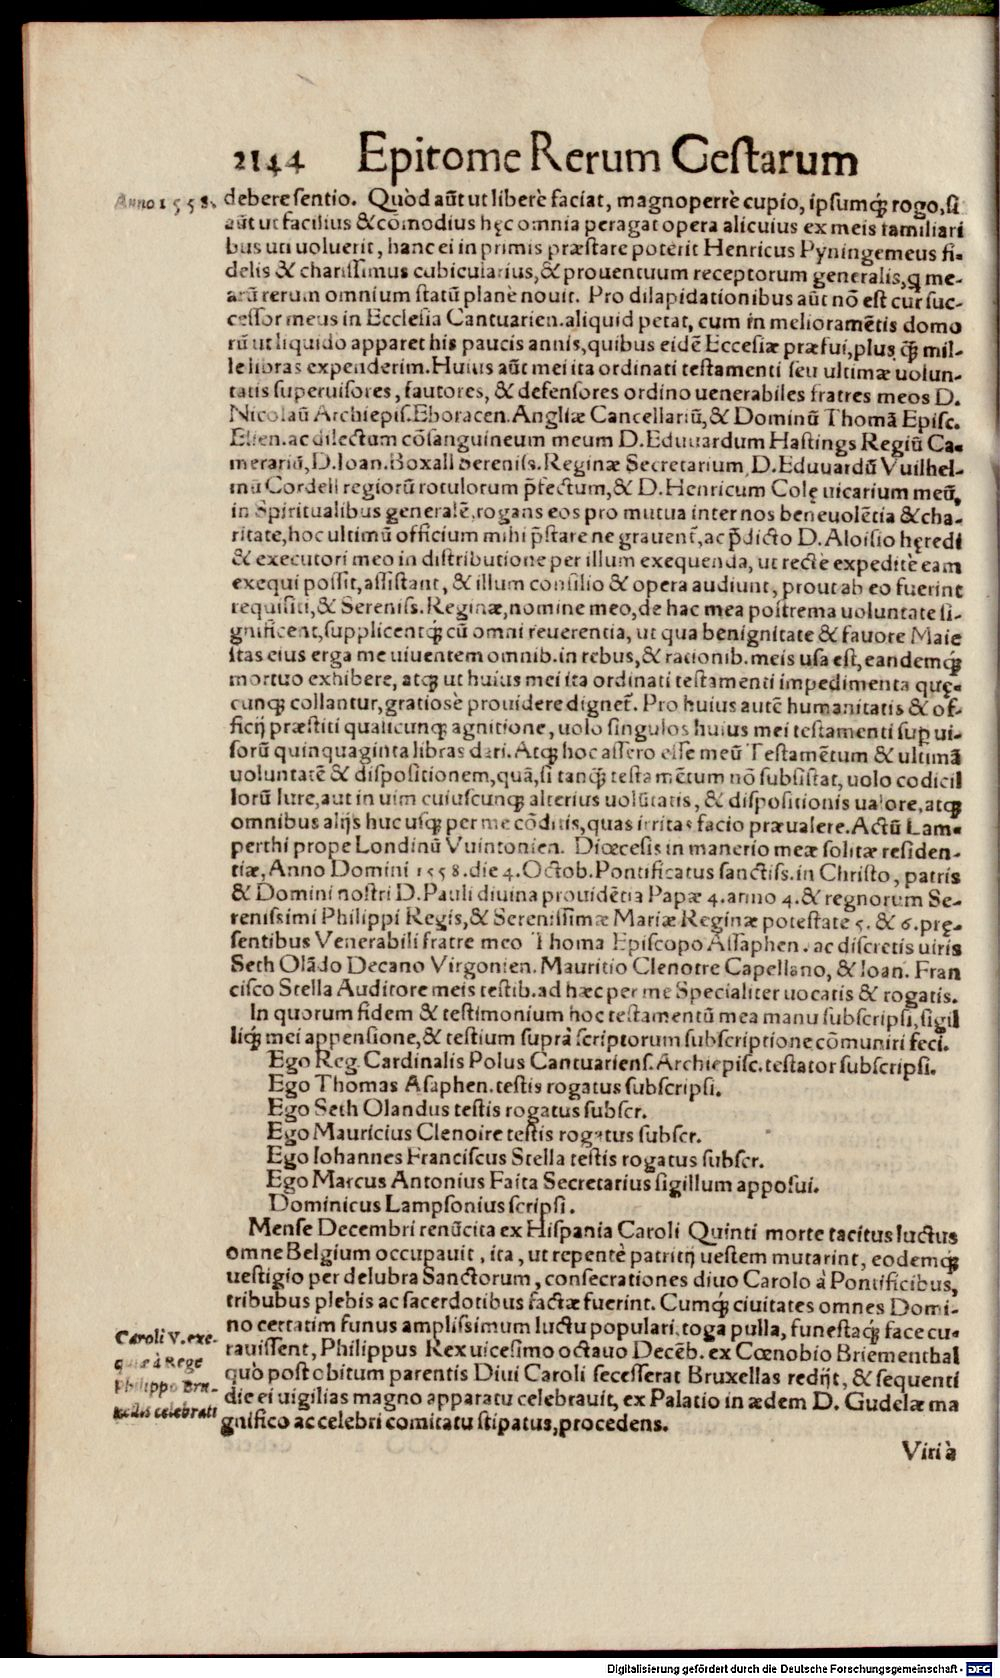 2144 Epitome Rerum Gestarum
Anno 1558. debere sentio. Quòd aũt ut liberè faciat, magnoperrè cupio, ipsumq́; rogo, si
aũt ut facilius & cõmodius hęc omnia peragat opera alicuius ex meis familiari
bus uti uoluerit, hanc ei in primis præstare poterit Henricus Pyningemeus fi-
delis & charissimus cubicularius, & prouentuum receptorum generalis, q me-
arũ rerum omnium statũ planè nouit. Pro dilapidationibus aũt nõ est cur suc-
cessor meus in Ecclesia Cantuarien. aliquid petat, cum in melioramẽtis domo
rũ ut liquido apparet his paucis annis, quibus eidẽ Eccesiæ præfui, plus q̃; mil-
le libras expenderim. Huius aũt mei ita ordinati testamenti seu ultimæ uolun-
tatis superuisores, fautores, & defensores ordino uenerabiles fratres meos D.
Nicolaũ Archiepis. Eboracen. Angliæ Cancellariũ, & Dominũ Thomã Episc.
Elien. ac dilectum cõsanguineum meum D. Eduuardum Hastings Regiũ Ca-
merariũ, D. Ioan. Boxall Sereniss. Reginæ Secretarium, D. Eduuardũ Vuilhel-
mũ Cordell regiorũ rotulorum p̃fectum, & D. Henricum Colę uicarium meũ,
in Spiritualibus generalẽ, rogans eos pro mutua inter nos beneuolẽtia & cha-
ritate, hoc ultimũ officium mihi p̃stare ne grauent̃, ac p̃dicto D. Aloisio hęredi
& executori meo in distributione per illum exequenda, ut rectè expeditè eam
exequi possit, assistant, & illum consilio & opera audiunt, prout ab eo fuerint
requisiti, & Sereniss. Reginæ, nomine meo, de hac mea postrema uoluntate si-
gnificent, supplicentq́; cũ omni reuerentia, ut qua benignitate & fauore Maie
stas eius erga me uiuentem omnib. in rebus, & rationib. meis usa est, eandemq́;
mortuo exhibere, atq; ut huius mei ita ordinati testamenti impedimenta quę-
cunq; collantur, gratiosè prouidere dignet̃. Pro huius autẽ humanitatis & of-
ficij præstiti qualicunq; agnitione, uolo singulos huius mei testamenti sup ui-
sorũ quinquaginta libras dari. Atq; hoc assero esse meũ Testamẽtum & ultimã
uoluntatẽ & dispositionem, quã, si tanq̃; testamẽtum nõ subsistat, uolo codicil
lorũ Iure, aut in uim cuiuscunq; alterius uolũtatis, & dispositionis ualore, atq;
omnibus alijs huc usq; per me cõditis, quas irritas facio præualere. Actũ Lam-
perthi prope Londinũ Vuintonien. Diœcesis in manerio meæ solitæ residen-
tiæ, Anno Domini 1558. die 4. Octob. Pontificatus sanctiss. in Christo, patris
& Domini nostri D. Pauli diuina prouidẽtia Papæ 4. anno 4. & regnorum Se-
renissimi Philippi Regis, & Serenissimæ Mariæ Reginæ potestate 5. & 6. prę-
sentibus Venerabili fratre meo Thoma Episcopo Assaphen. ac discretis uiris
Seth Olãdo Decano Virgonien. Mauritio Clenotre Capellano, & Ioan. Fran
cisco Stella Auditore meis testib. ad hæc per me Specialiter uocatis & rogatis.
In quorum fidem & testimonium hoc testamentũ mea manu subscripsi, sigil
liq́; mei appensione, & testium suprà scriptorum subscriptione cõmuniri feci.
Ego Reg. Cardinalis Polus Cantuariens. Archiepisc. testator subscripsi.
Ego Thomas Asaphen. testis rogatus subscripsi.
Ego Seth Olandus testis rogatus subscr.
Ego Mauricius Clenoire testis rogatus subscr.
Ego Iohannes Franciscus Stella testis rogatus subscr.
Ego Marcus Antonius Faita Secretarius sigillum apposui.
Dominicus Lampsonius scripsi.
Mense Decembri renũcita ex Hispania Caroli Quinti morte tacitus luctus
omne Belgium occupauit, ita, ut repentè patritij uestem mutarint, eodemq́;
uestigio per delubra Sanctorum, consecrationes diuo Carolo à Pontificibus,
tribubus plebis ac sacerdotibus factæ fuerint. Cumq́; ciuitates omnes Domi-
no certatim funus amplissimum luctu populari, toga pulla, funestaq́; face cu-
rauissent, Philippus Rex uicesimo octauo Decẽb. ex Cœnobio Briementhal
quò post obitum parentis Diui Caroli secesserat Bruxellas redijt, & sequenti
die ei uigilias magno apparatu celebrauit, ex Palatio in ædem D. Gudelæ ma
gnifico ac celebri comitatu stipatus, procedens.
Caroli V. exe-
quiæ à Rege
Philippo Bru-
xellis celebrati
Viri à
Digitalisierung gefördert durch die Deutsche Forschungsgemeinschaft - DFG